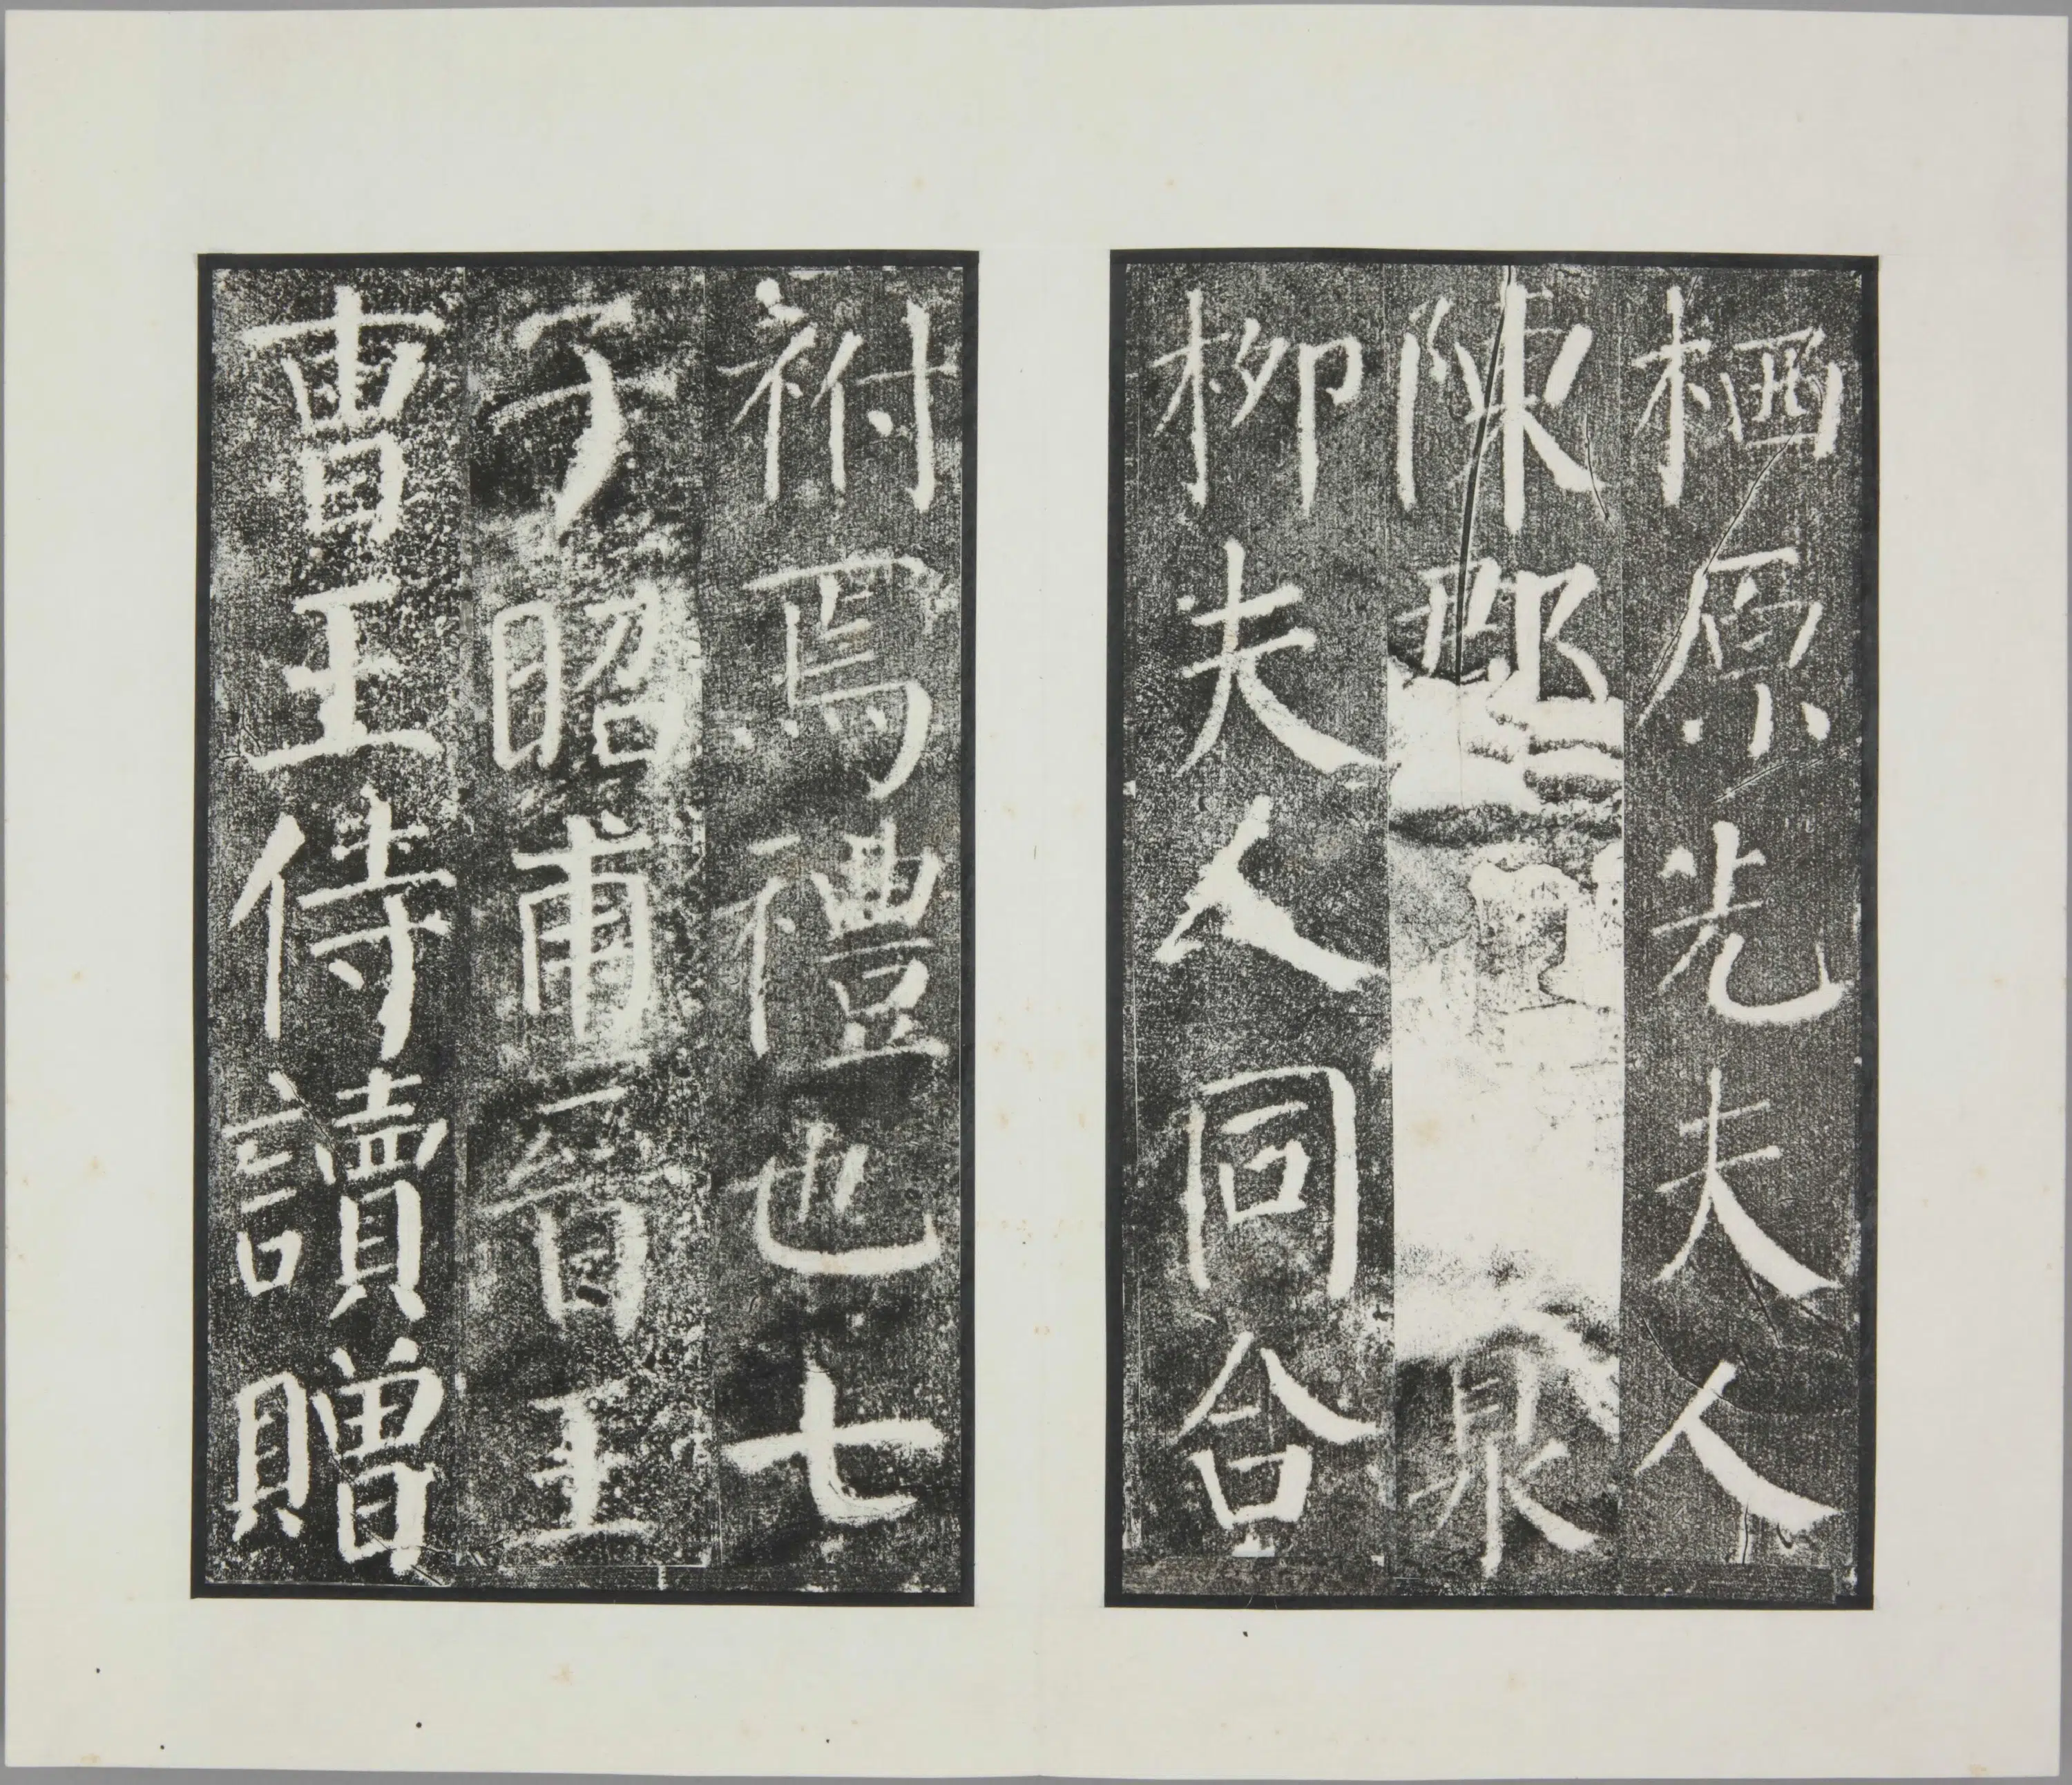 栖原先夫人
陳郡泉
柳夫人同合
祔焉禮也七
子昭甫晉王
曹王侍讀贈